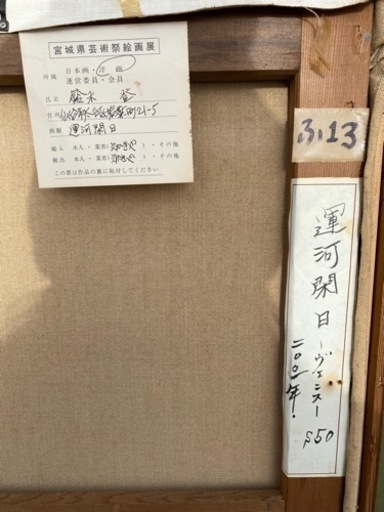 宮城県芸術祭絵画展
所属 日本画・洋画
運営委員・会員
氏名 鈴木 登
住所 21-5
画題 運河閑日
搬入 本人・業者( )・その他
搬出 本人・業者( )・その他
この票は作品の裏に貼付してください
ふ13
運河閑日 ーヴェニスー S50
二〇〇一年.